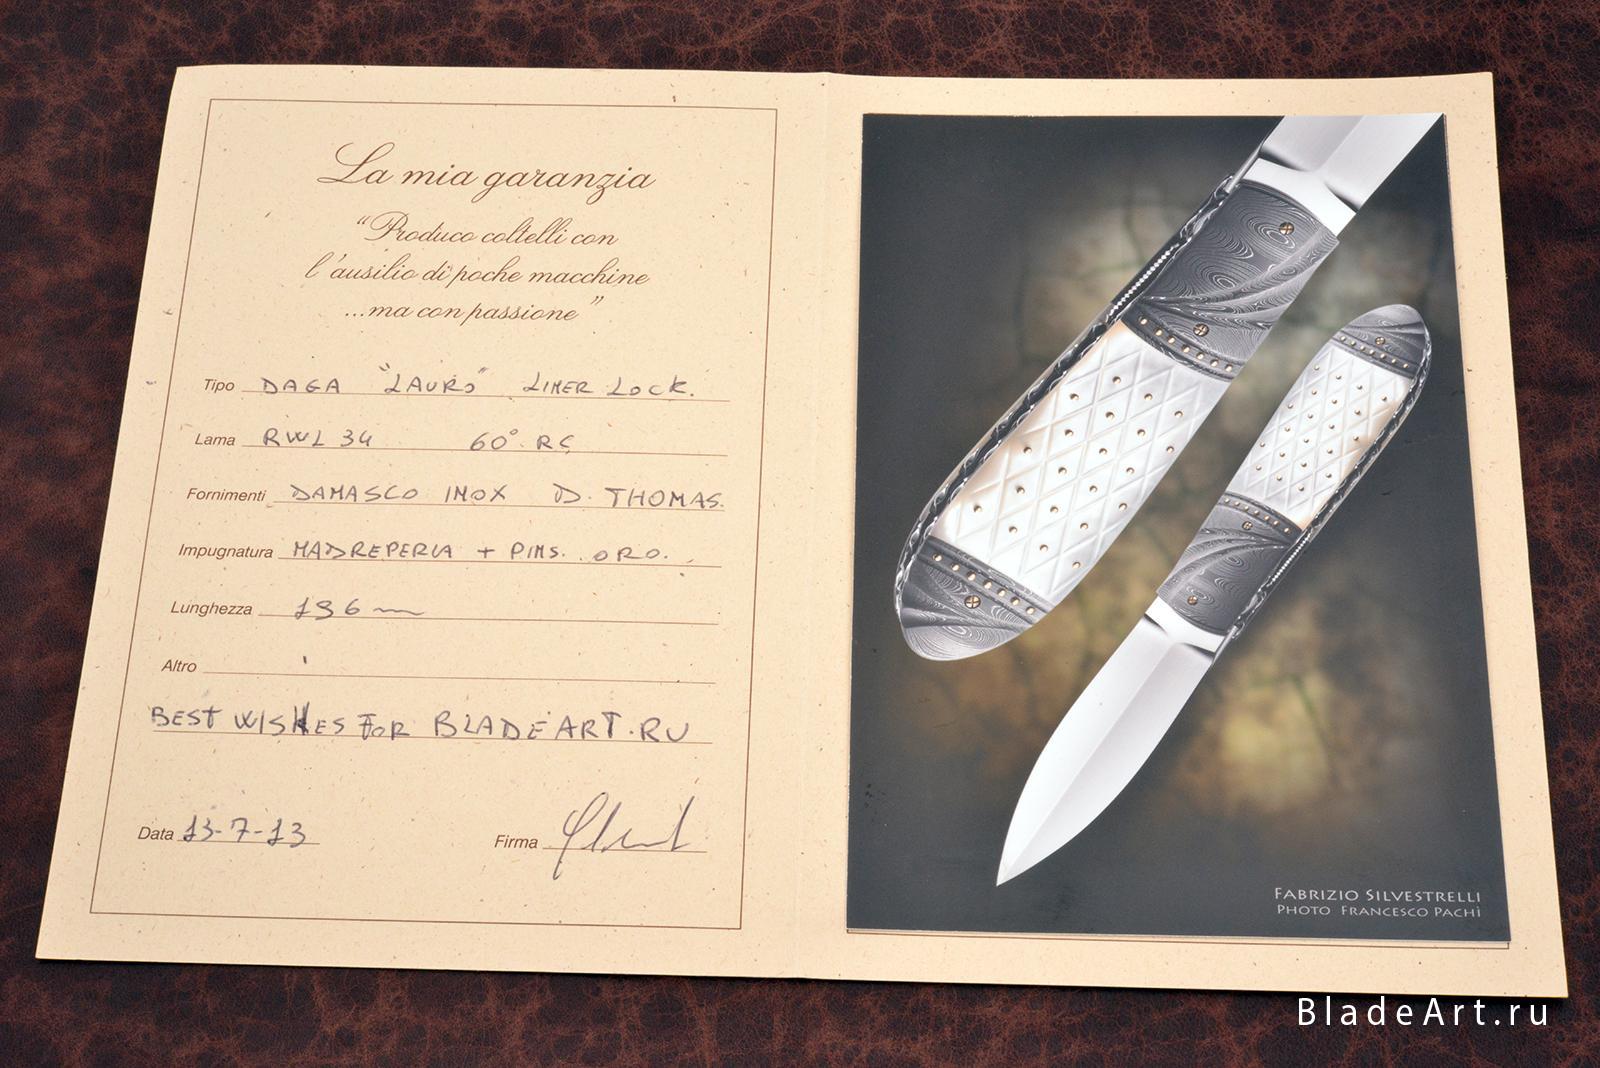 La mia garanzia
“Produco coltelli con
l'ausilio di poche macchine
...ma con passione”
Tipo DAGA "LAURO" LINER LOCK.
Lama RWL 34 60° RC
Fornimenti DAMASCO INOX D. THOMAS.
Impugnatura MADREPERLA + PINS. ORO.
Lunghezza 196 mm
Altro
BEST WISHES FOR BLADEART.RU
Data 13-7-13 Firma
FABRIZIO SILVESTRELLI
PHOTO FRANCESCO PACHÌ
BladeArt.ru